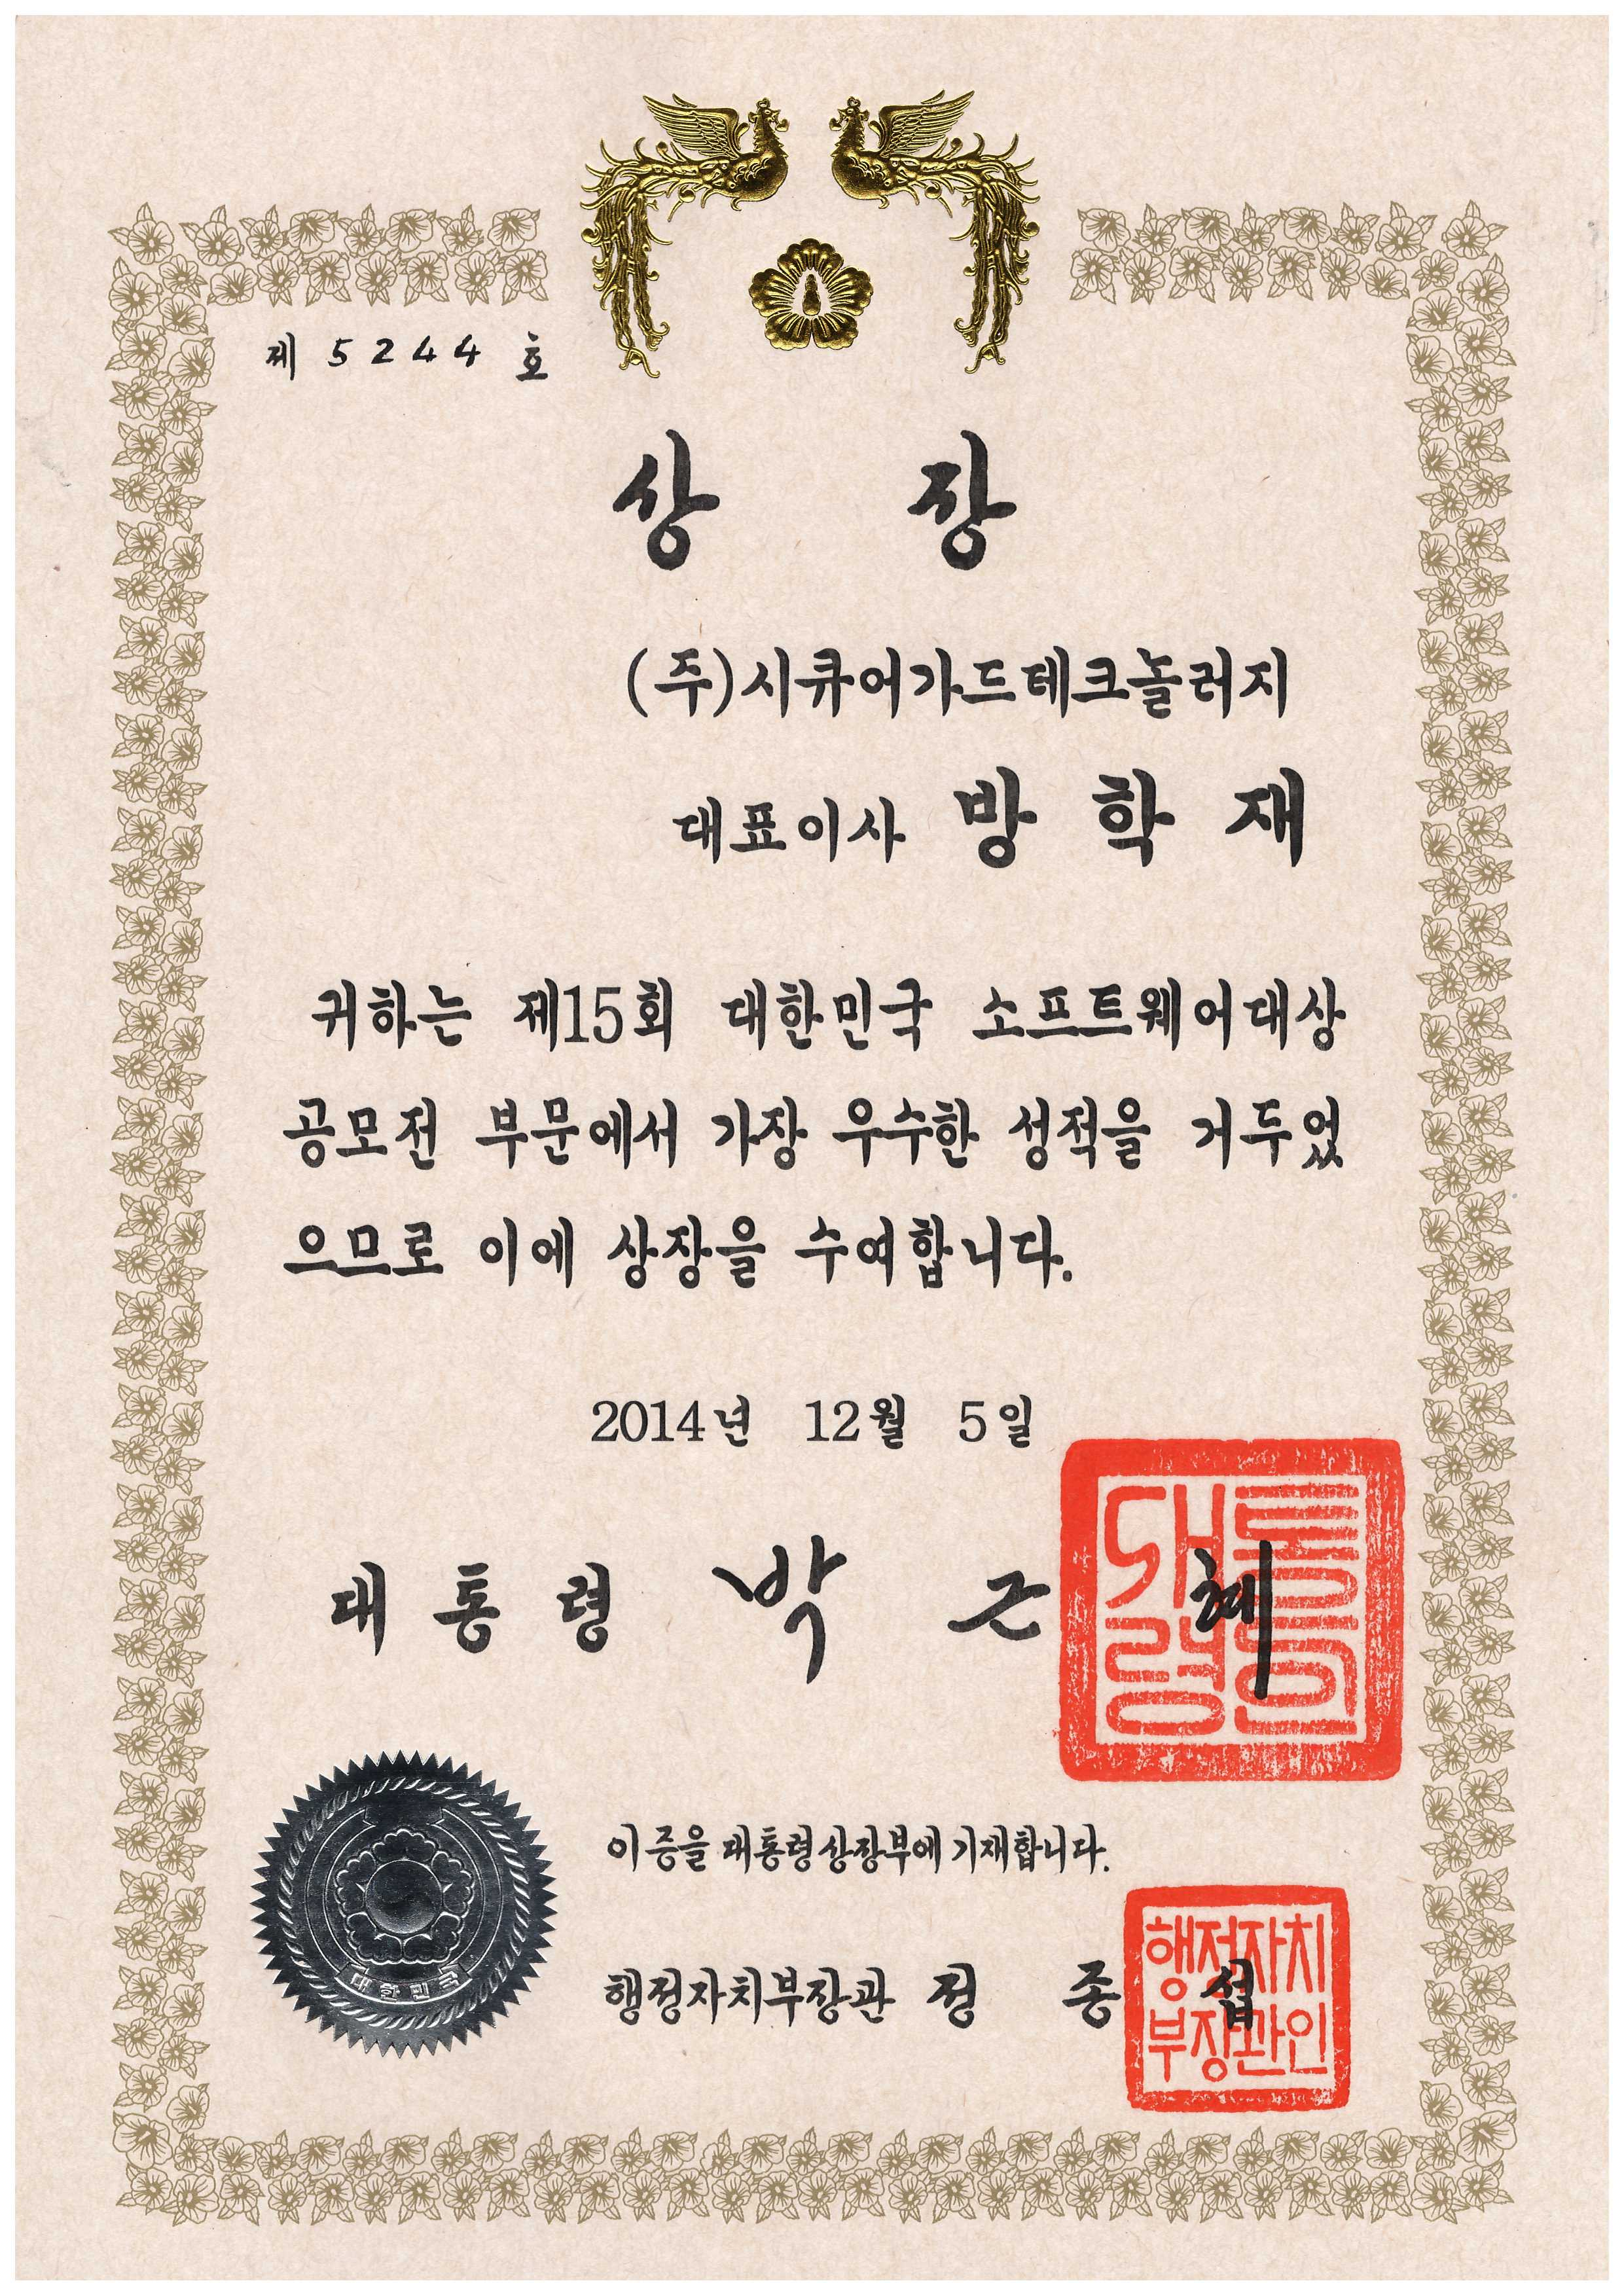 제 5244 호
상 장
(주)시큐어가드테크놀러지
대표이사 방 학 재
귀하는 제15회 대한민국 소프트웨어대상
공모전 부문에서 가장 우수한 성적을 거두었
으므로 이에 상장을 수여합니다.
2014년 12월 5일
대 통 령 박 근 혜
대통령인
이 증을 대통령상장부에 기재합니다.
행정자치부장관 정 종 섭
행정자치
부장관인
대한민국